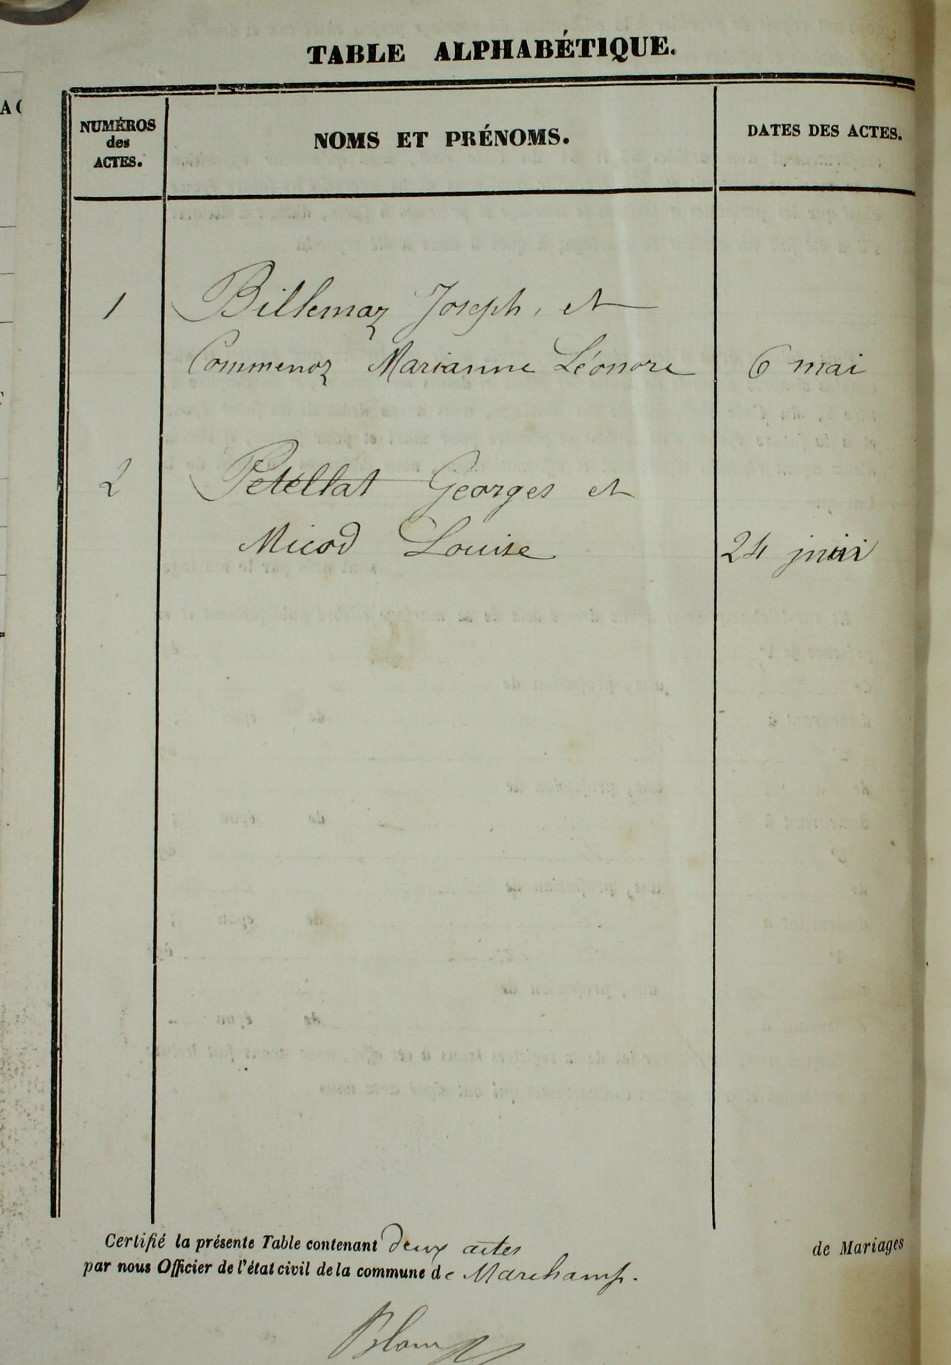 TABLE ALPHABÉTIQUE.
NUMÉROS
des
ACTES.
NOMS ET PRÉNOMS.
DATES DES ACTES.
1 Billemaz Joseph, et
Commenoz Marianne Léonore 6 mai
2 Petellat Georges et
Micod Louise 24 juin
Certifié la présente Table contenant deux actes de Mariages
par nous Officier de l'état civil de la commune de Marchamp.